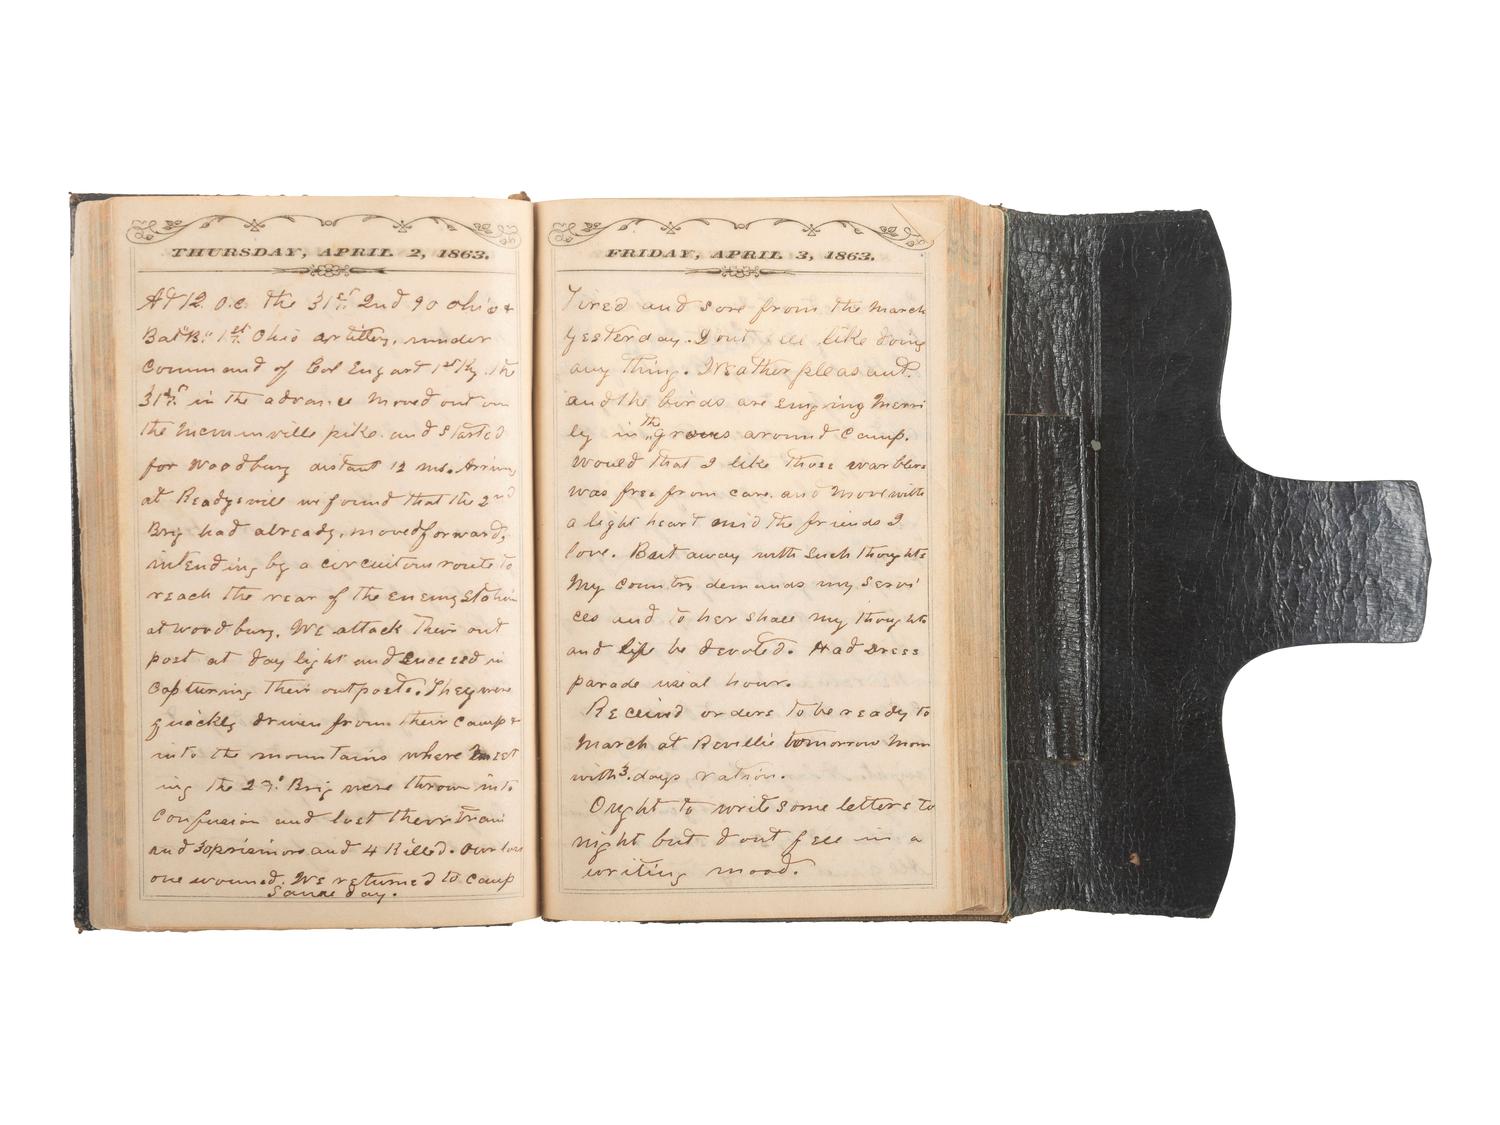 THURSDAY, APRIL 2, 1863.
At 12. O.C. the 31st. 2nd 90 Ohio &
Bat "B." 1st. Ohio artillery, under
Command of Col Enyart 1st Ky. the
31st. in the advance moved out on
the McMinnville pike. and started
for Woodbury distant 12 ms. Arriving
at Readysvill we found that the 2nd
Brig had already, moved forward,
intending by a circuitous route to
reach the rear of the enemy Station
at Woodbury. We attack their out
post at day light and succeed in
Capturing their outposts. They were
quickly driven from their camp &
into the mountains where meet
ing the 2d. Brig were thrown into
Confusion and lost their train
and 30 prisinors and 4 Killed. Our loss
one wounded. We returned to camp
Same day.
FRIDAY, APRIL 3, 1863.
Tired and sore from the march
yesterday. Dont like doing
any thing. Weather pleasant.
and the birds are singing merri
ly in The groves around Camp.
Would that I like those warblers
was free from care. and move with
a light heart mid the friends I
love. But away with such thoughts
My Country demands my servi
ces and to her shall my thoughts
and life be devoted. Had Dress
parade usial hour.
Receivd orders to be ready to
march at Revillie tomorrow Morn
with 3. days ration.
Ought to write some letters to
night but dont feel in a
writing mood.